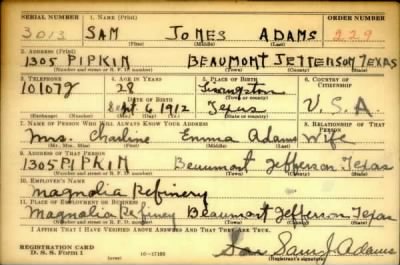 SERIAL NUMBER 1. NAME (Print) ORDER NUMBER
3013 SAM JONES ADAMS 229
(First) (Middle) (Last)
2. ADDRESS (Print)
1305 PIPKIN BEAUMONT JEFFERSON TEXAS
(Number and street or R. F. D. number) (Town) (County) (State)
3. TELEPHONE 4. AGE IN YEARS 5. PLACE OF BIRTH 6. COUNTRY OF CITIZENSHIP
10107J 28 Livingston
DATE OF BIRTH (Town or county)
Sept. 6 1912 Texas U.S.A.
(Exchange) (Number) (Mo.) (Day) (Yr.) (State or country)
7. NAME OF PERSON WHO WILL ALWAYS KNOW YOUR ADDRESS 8. RELATIONSHIP OF THAT PERSON
Mrs. Charline Emma Adams Wife
(Mr., Mrs., Miss) (First) (Middle) (Last)
9. ADDRESS OF THAT PERSON
1305 PIPKIN Beaumont Jefferson Texas
(Number and street or R. F. D. number) (Town) (County) (State)
10. EMPLOYER'S NAME
Magnolia Refinery
11. PLACE OF EMPLOYMENT OR BUSINESS
Magnolia Refiney Beaumont Jefferson Texas
(Number and street or R. F. D. number) (Town) (County) (State)
I AFFIRM THAT I HAVE VERIFIED ABOVE ANSWERS AND THAT THEY ARE TRUE.
REGISTRATION CARD
D. S. S. FORM 1 (over) 16—17105
Sam J. Adams
(Registrant's signature)